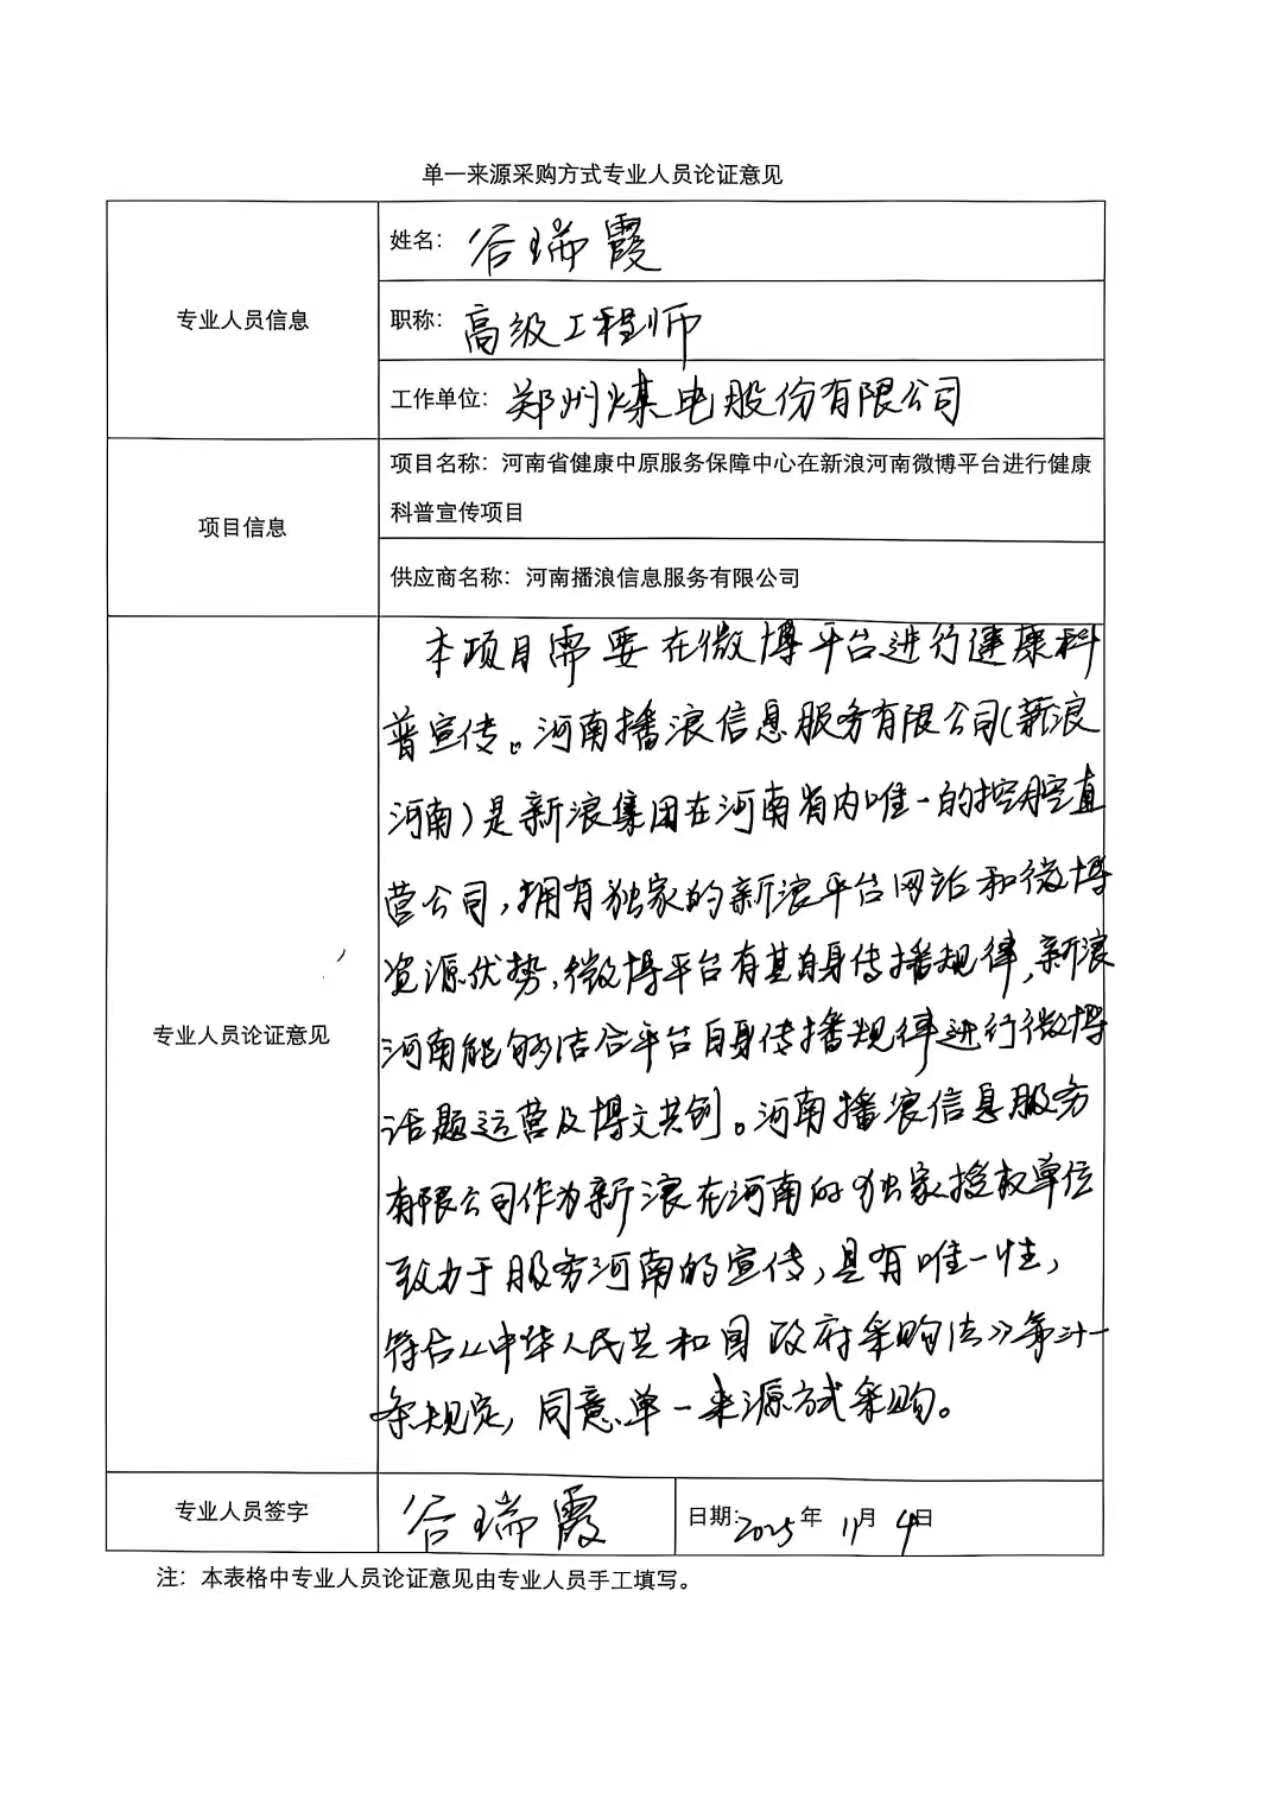 单一来源采购方式专业人员论证意见
专业人员信息
姓名：谷瑞霞
职称：高级工程师
工作单位：郑州煤电股份有限公司
项目信息
项目名称：河南省健康中原服务保障中心在新浪河南微博平台进行健康
科普宣传项目
供应商名称：河南播浪信息服务有限公司
专业人员论证意见
本项目需要在微博平台进行健康科
普宣传。河南播浪信息服务有限公司（新浪
河南）是新浪集团在河南省内唯一的控股直
营公司，拥有独家的新浪平台网站和微博
资源优势，微博平台有其自身传播规律，新浪
河南能够结合平台自身传播规律进行微博
话题运营及博文共创。河南播浪信息服务
有限公司作为新浪在河南的独家授权单位
致力于服务河南的宣传，具有唯一性，
符合《中华人民共和国政府采购法》第三十一
条规定，同意单一来源方式采购。
专业人员签字
谷瑞霞
日期：2025年11月4日
注：本表格中专业人员论证意见由专业人员手工填写。